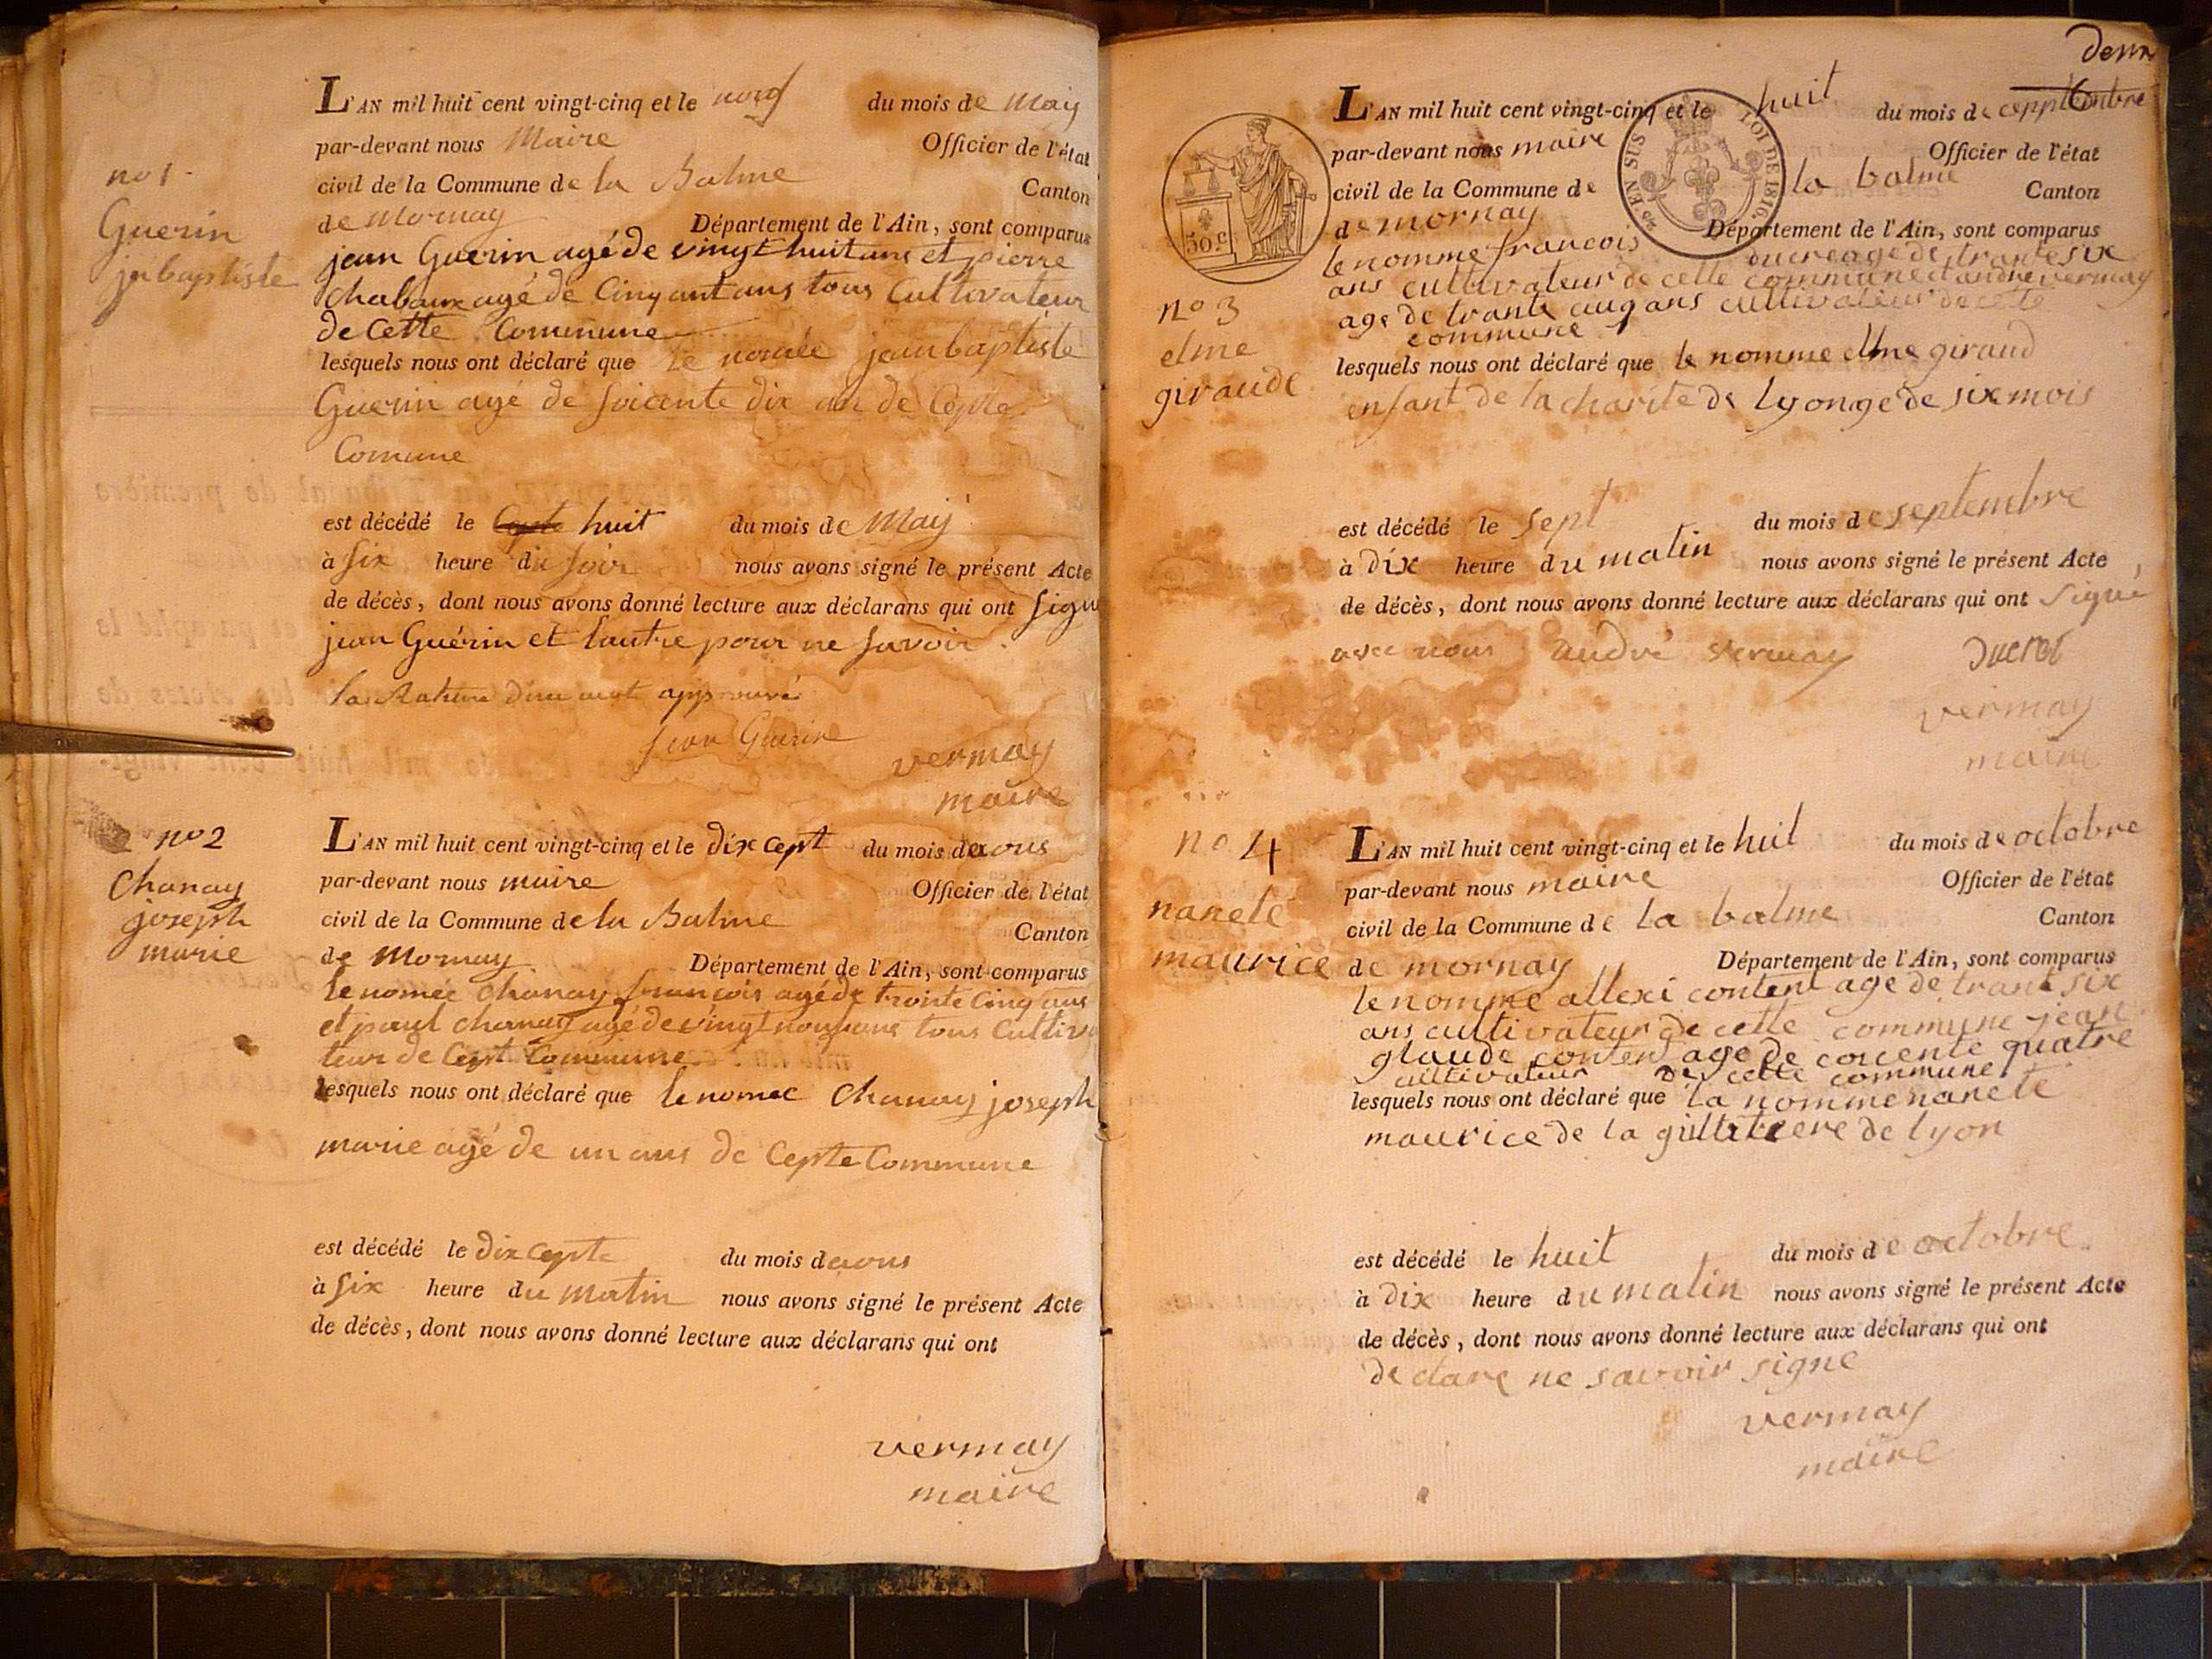 no 1.
Guerin
jn baptiste
L'AN mil huit cent vingt-cinq et le nouf du mois de May
par-devant nous Maire Officier de l'état
civil de la Commune de la Balme Canton
de Mornay Département de l'Ain, sont comparus
jean Guerin agé de vingt huit ans et pierre
Chabaux agé de Cinqant ans tous Cultivateur
de Cette Commune
lesquels nous ont déclaré que le nomée jean baptiste
Guerin agé de soicente dix an de Cepte
Comune
est décédé le Cepte huit du mois de May
à six heure du soir nous avons signé le présent Acte
de décès, dont nous avons donné lecture aux déclarans qui ont signé
jean Guérin et lautre pour ne savoir.
la Rature d'un mot approuvé
jean Guerin
vermay
maire
no 2
Chanay
joseph
marie
L'AN mil huit cent vingt-cinq et le dix cept du mois daous
par-devant nous maire Officier de l'état
civil de la Commune de la Balme Canton
de Mornay Département de l'Ain, sont comparus
le nomée Chanay francois agé de trente Cinq ans
et paul chanay agé de vingt nouf ans tous Cultiva
teur de Cept Commune
lesquels nous ont déclaré que le nomee Chanay joseph
marie agé de un ans de Cepte Commune
est décédé le dix Cepte du mois daous
à six heure du matin nous avons signé le présent Acte
de décès, dont nous avons donné lecture aux déclarans qui ont
vermay
maire
deux
6
50 c
EN SUS
LOI DE 1816
L'AN mil huit cent vingt-cinq et le huit du mois de cepptembre
par-devant nous maire Officier de l'état
civil de la Commune de la balme Canton
de mornay Département de l'Ain, sont comparus
no 3
elme
giraude
le nomme francois ducre age de trante six
ans cultivateur de cette commune et andre vermay
age de trante cinq ans cultivateur de cete
commune
lesquels nous ont déclaré que le nomme elme giraud
enfant de la charite de lyon ge de six mois
est décédé le sept du mois de septembre
à dix heure du matin nous avons signé le présent Acte
de décès, dont nous avons donné lecture aux déclarans qui ont signé
avec nous andré vermay ducret
vermay
maire
no 4
nanete
maurice
L'AN mil huit cent vingt-cinq et le huit du mois de octobre
par-devant nous maire Officier de l'état
civil de la Commune de la balme Canton
de mornay Département de l'Ain, sont comparus
le nomme allexi content age de trant six
ans cultivateur de cette commune jean
glaude conten age de cocente quatre
cultivateur de cette commune
lesquels nous ont déclaré que la nomme nanete
maurice de la guillitiere de lyon
est décédé le huit du mois de octobre
à dix heure du matin nous avons signé le présent Acte
de décès, dont nous avons donné lecture aux déclarans qui ont
declare ne savoir signe
vermay
maire